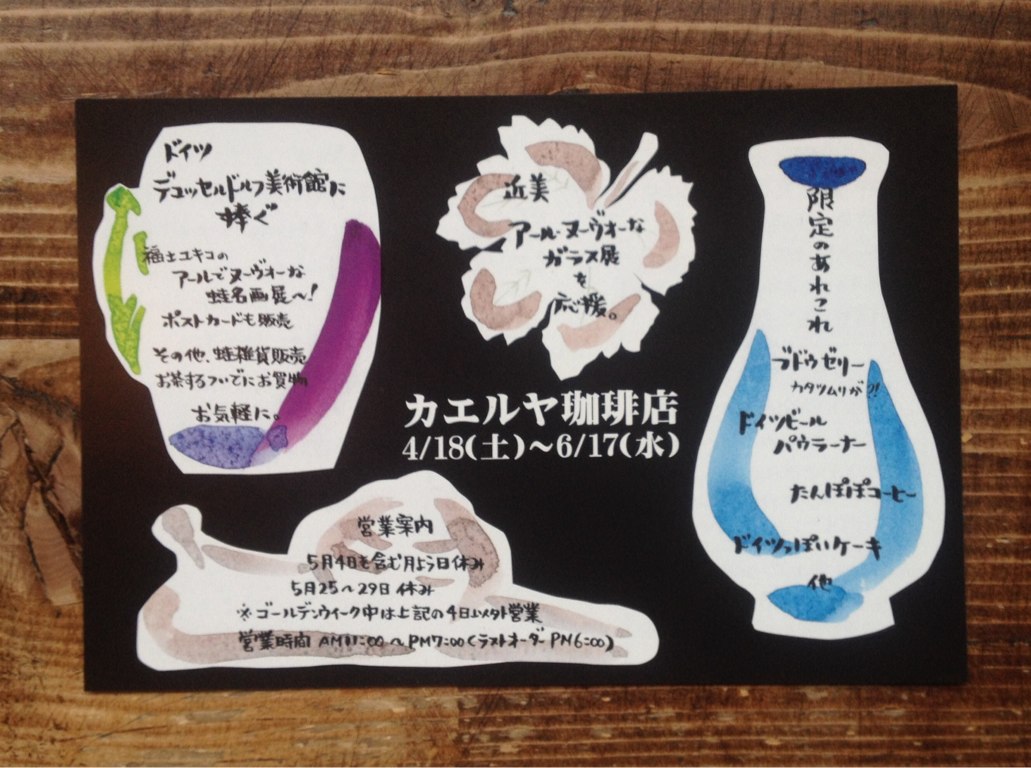 ドイツ
デュッセルドルフ美術館に
捧ぐ
福士ユキコの
アールでヌーヴォーな
蛙名画展〜!
ポストカードも販売
その他、蛙雑貨販売
お茶するついでにお買物
お気軽に。
近美
アール・ヌーヴォーな
ガラス展
を
応援。
カエルヤ珈琲店
4/18(土)〜6/17(水)
限定のあれこれ
ブドウゼリー
カタツムリが?!
ドイツビール
パウラーナー
たんぽぽコーヒー
ドイツっぽいケーキ
他
営業案内
5月4日も含む月よう日休み
5月25〜29日休み
※ゴールデンウィーク中は上記の4日以外営業
営業時間 AM11:00〜PM7:00(ラストオーダーPM6:00)